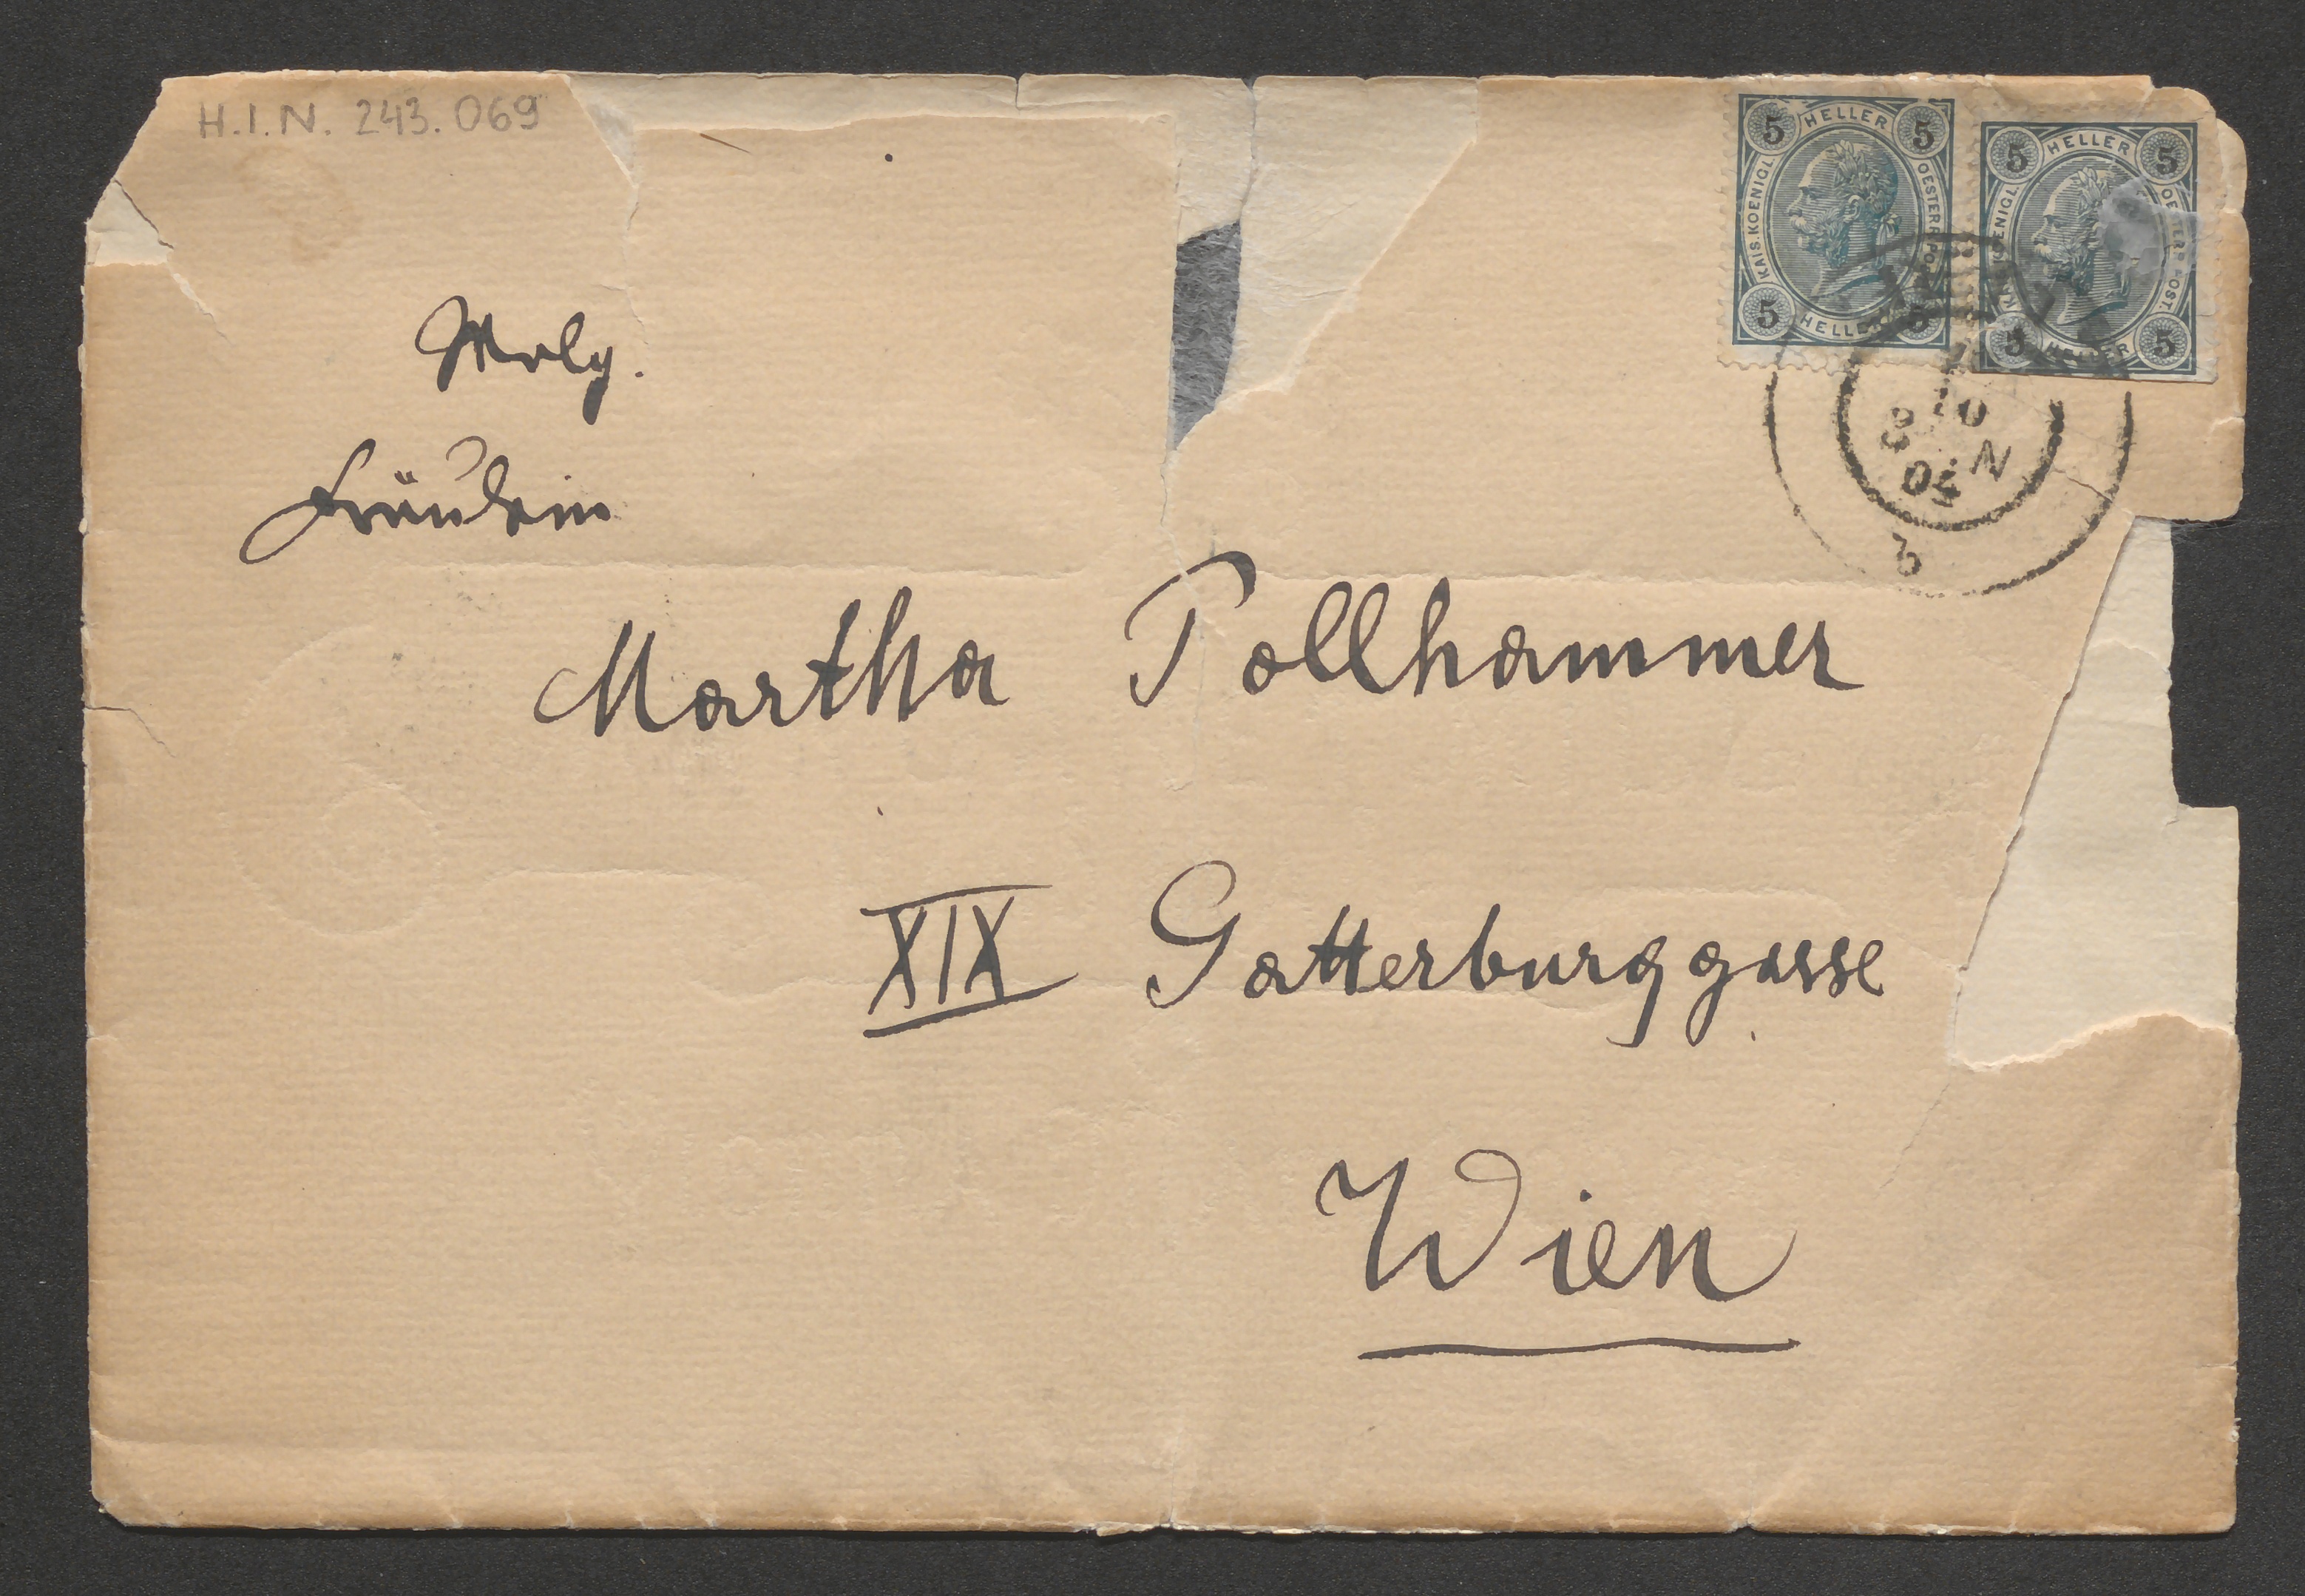 H.I.N. 243.069
HELLER
5 5
KAIS. KOENIGL. OESTERR. POST.
5 5
HELLER
HELLER
5 5
OESTERR. POST.
5 5
HELLER
10
8 N
05
Wolg.
Fräulein
Martha Pollhammer
XIX Gatterburggasse
Wien